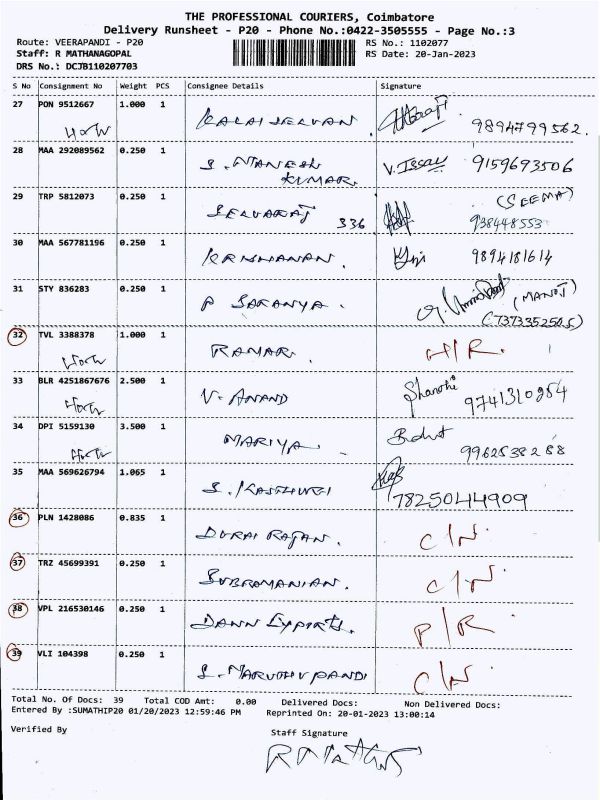 THE PROFESSIONAL COURIERS, Coimbatore
Delivery Runsheet - P20 - Phone No.:0422-3505555 - Page No.:3
Route: VEERAPANDI - P20 RS No.: 1102077
Staff: R MATHANAGOPAL RS Date: 20-Jan-2023
DRS No.: DCJB110207703
S No Consignment No Weight PCS Consignee Details Signature
27 PON 9512667 1.000 1 KALAISELVAN. 9894799562.
28 MAA 292089562 0.250 1 S. MANESH KUMAR. V. Issac 9159693506
29 TRP 5812073 0.250 1 SELVARAJ 336 (SEEMA) 938448553
30 MAA 567781196 0.250 1 KRISHANAN. 9894181614
31 STY 836283 0.250 1 P SARANYA. (MANOJ) (7373352505)
32 TVL 3388378 1.000 1 RAMAR. H/R.
33 BLR 4251867676 2.500 1 V. ANAND Shanthi 9741310254
34 DPI 5159130 3.500 1 MARIYA. 9962538288
35 MAA 569626794 1.065 1 S. KASTHURI 7825044909
36 PLN 1428086 0.835 1 DURAI RAJAN. C/N.
37 TRZ 45699391 0.250 1 SUBRAMANIAN. C/N.
38 VPL 216530146 0.250 1 DANN Exports. P/R.
39 VLI 104398 0.250 1 S. MARUTHUPANDI C/N.
Total No. Of Docs: 39 Total COD Amt: 0.00 Delivered Docs: Non Delivered Docs:
Entered By :SUMATHIP20 01/20/2023 12:59:46 PM Reprinted On: 20-01-2023 13:00:14
Verified By Staff Signature